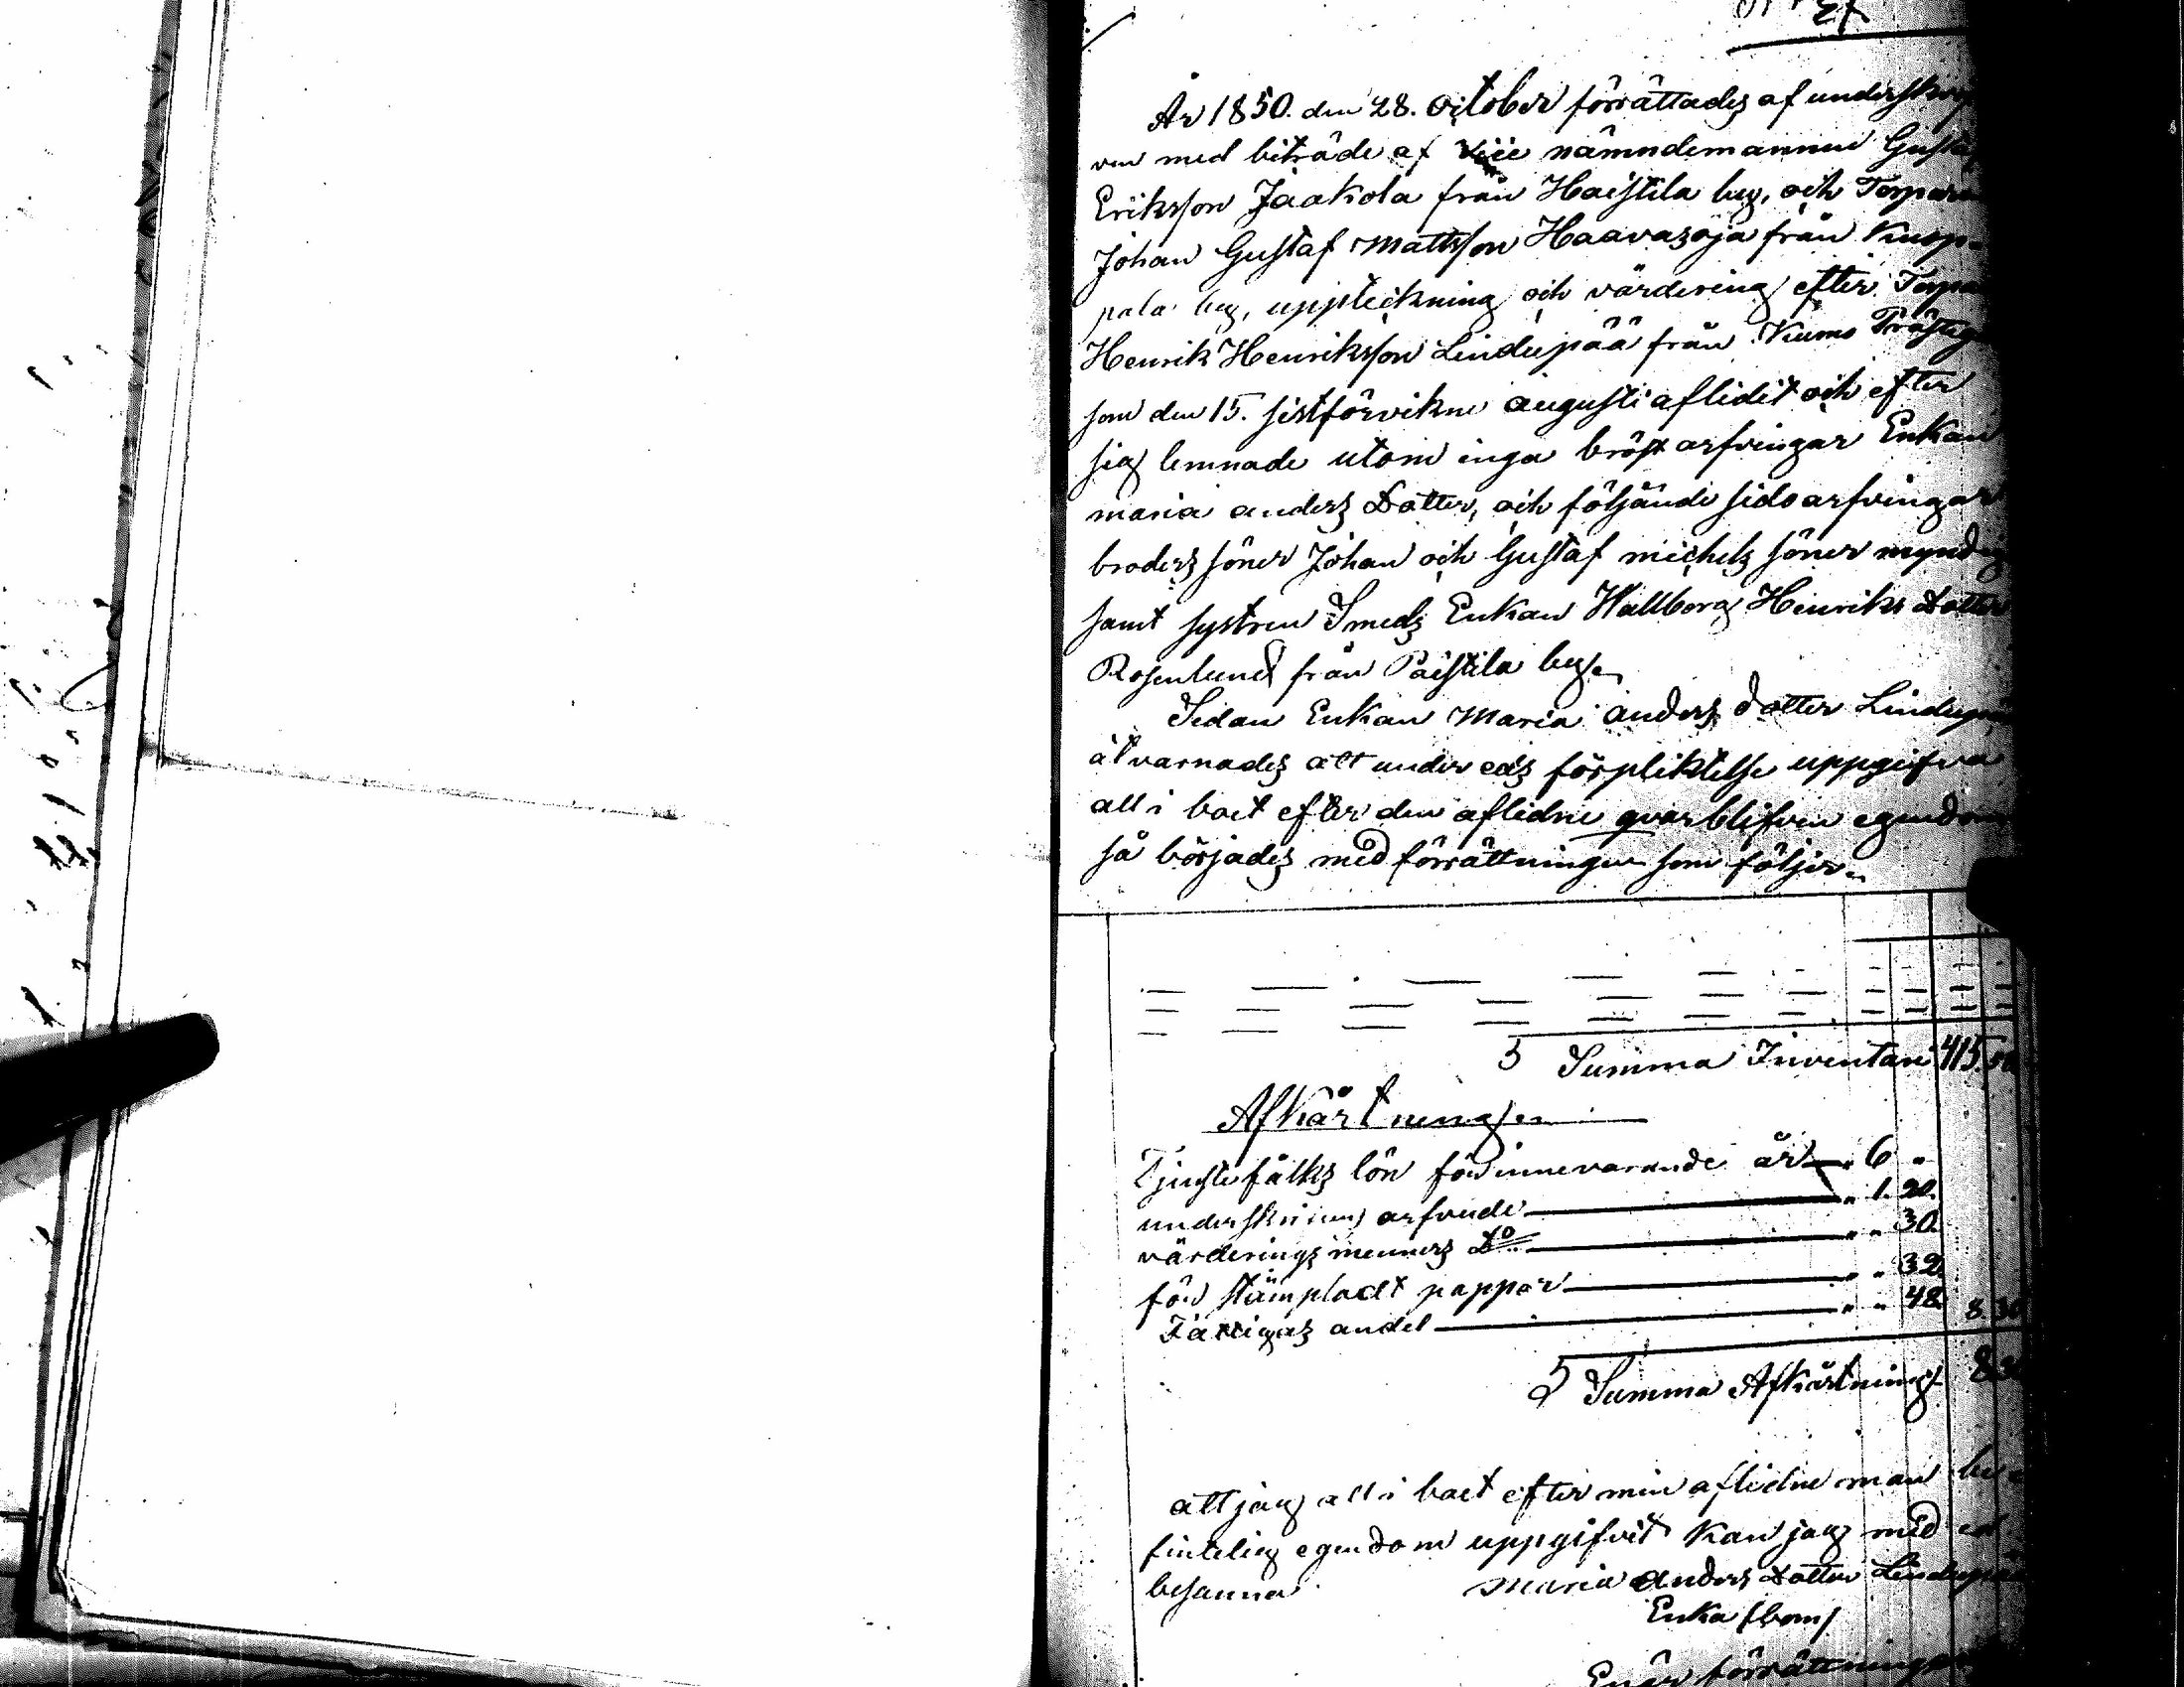 År 1850. den 28. October förrättades af underskrif
ven med biträde af Vice nämndemannen Gustaf
Eriksson Jaakola från Haistila by, och Torparen
Johan Gustaf Mattsson Haavasoja från Knop-
pala by, uppteckning och värdering efter Torpar
Henrik Henriksson Lindupää från Kumo Prästeg
som den 15. sistförvikne augusti aflidit och efter
sig lemnade utom inga bröst arfvingar Enkan
maria anders Dotter, och följande sido arfvingar
broders söner Johan och Gustaf michels söner myndig
samt systren Smeds Enkan Wallborg Henriks Dotter
Rosenlund från Paistila by.
Sedan Enkan Maria anders dotter Lindup
åtvarnades att under eds förpliktelse uppgifva
all i boet efter den aflidne qvarblifven egendom
så börjades med förrättningen som följer.
S Summa Inventari 415.
Afkårtning
Tjenstefålks lön för innevarande år 6 "
underskrivens arfvude " 1. 20.
värderings menners Do " " 30
för stämpladt papper " " 32.
Fattigas andel " " 48. 8.30
S Summa Afkårtning 8.30
att jag all i boet efter min aflidne man be
fintelig egendom uppgifvit kan jag med ed
besanna maria anders dotter Lindupää
Enka (bom)
förrättnings